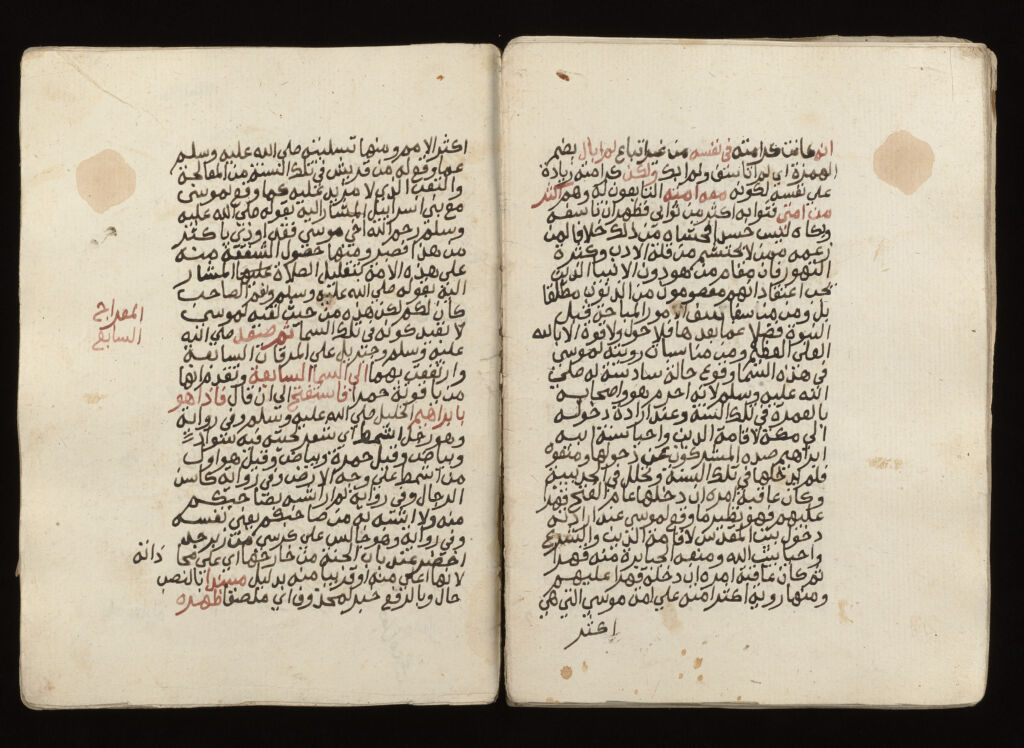 انه كانت كرامته في نفسه من غير اتباع لم ابال بضم
الهمزة اي لم اتاسف ولم ابك ولكن كرامته زيادة
على نفسه لكونه معه امته التابعون له وهم اكثر
من امتي فثوابه اكثر من ثوابي فظهر ان تاسفه
وبكاه ليس حسدا حاشاه من ذلك خلافا لمن
زعمه ممن لا يحتشم من قلة الادب وكثرة
التهور فان مقام من هو دون الانبيا الذين
يجب اعتقاد انهم معصومون من الذنوب مطلقا
بل ومن منا سفا الامور المباحة قبل
النبوة فضلا عما بعدها فلا حول ولا قوة الا بالله
العلي العظيم ومن مناسبات رويته لموسى
في هذه السما وقوع حالة سادسة له صلى
الله عليه وسلم لانه احرم هو واصحابه
بالعمرة في تلك السنة وعند ارادة دخوله
الى مكة لاقامة الدين واحيا سنة ابيه
ابراهيم صده المشركون عن دخولها ومنعوه
فلم يدخلها في تلك السنة وتحلل في الحديبية
وكان عاقبة امره ان دخلها عام الفتح قهرا
عليهم فهو نظير ما وقع لموسى عند ارادته
دخول بيت المقدس لاقامة الدين والشرع
واحيا بيت الله ومنعه الجبابرة منه قهرا
ثم كان عاقبة امره ان دخله قهرا عليهم
ومنها روية اكثر امته على امة موسى التي هي
اكثر
اكثر الامم ومنها تسليته صلى الله عليه وسلم
عما وقع له من قريش في تلك السنة من المعالجة
والتعب الذي لا مزيد عليه كما وقع لموسى
مع بني اسرائيل المشار اليه بقوله صلى الله عليه
وسلم رحم الله اخي موسى فقد اوذي باكثر
من هذا فصبر ومنها حصول الشفقة منه
على هذه الامة بتقليل الصلاة عليها المشار
اليه بقوله صلى الله عليه وسلم ونعم الصاحب
كان لكم لكن هذه من حيث لقيه لموسى
لا بقيد كونه في تلك السما ثم صعد صلى الله
عليه وسلم وجبريل على المرقاة السابعة
وارتفعت بهما الى السما السابعة وتقدم انها
من ياقوتة حمرا فاستفتح الى ان قال فاذا هو
بابراهيم الخليل صلى الله عليه وسلم وفي رواية
وهو رجل اشمط اي شعر لحيته فيه سواد
وبياض وقيل حمرة وبياض وقيل هو اول
من اشمط على وجه الارض وفي رواية كاحسن
الرجال وفي رواية لم ار اشبه بصاحبكم
منه ولا اشبه به من صاحبكم يعني نفسه
وفي رواية وهو جالس على كرسي من زبرجد
اخضر عند باب الجنة من خارجها اي على محاذاته
لانها اعلى منه او قريبا منه بدليل مسندا بالنصب
حال وبالرفع خبر لمحذوف اي ملصقا ظهره
المعراج
السابع